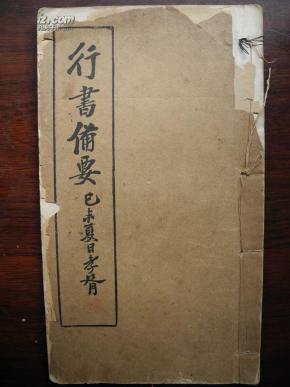 行書備要
己未夏日孝胥